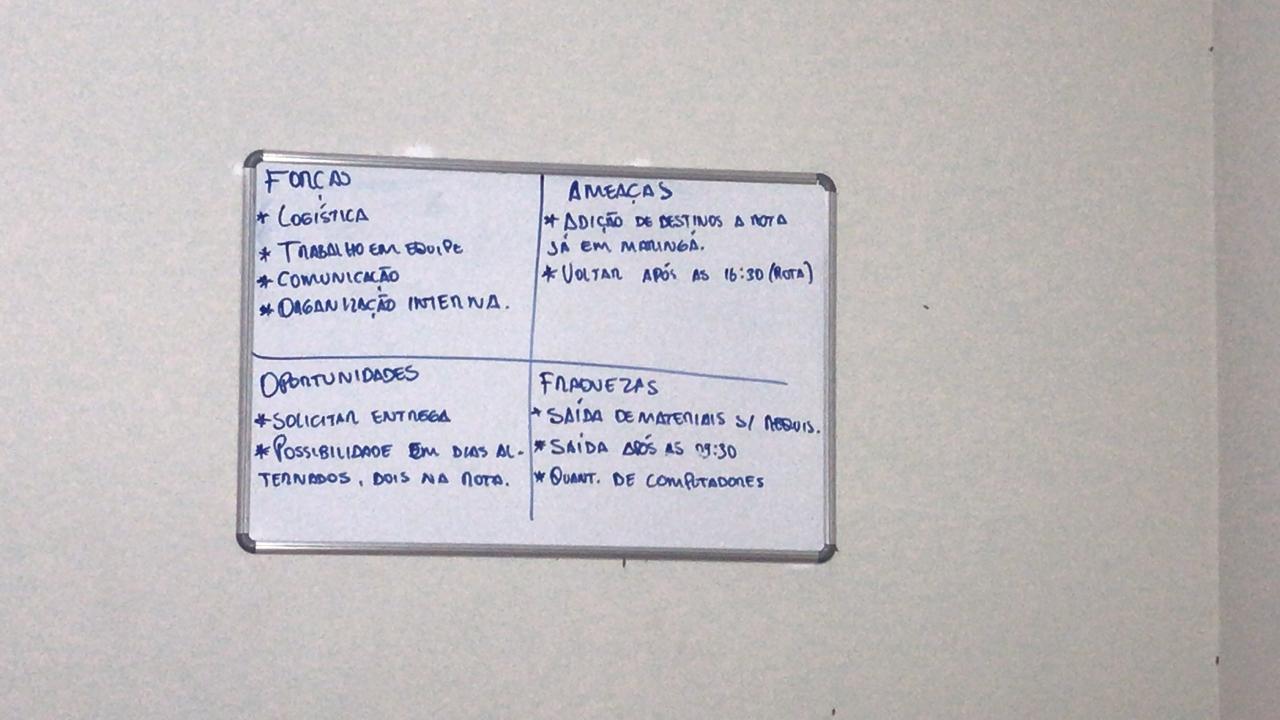 FORÇAS
* LOGÍSTICA
* TRABALHO EM EQUIPE
* COMUNICAÇÃO
* ORGANIZAÇÃO INTERNA.
AMEAÇAS
* ADIÇÃO DE DESTINOS A ROTA
JÁ EM MARINGÁ.
* VOLTAR APÓS AS 16:30 (ROTA)
OPORTUNIDADES
* SOLICITAR ENTREGA
* POSSIBILIDADE EM DIAS AL-
TERNADOS, DOIS NA ROTA.
FRAQUEZAS
* SAÍDA DE MATERIAIS S/ REQUIS.
* SAÍDA APÓS AS 09:30
* QUANT. DE COMPUTADORES